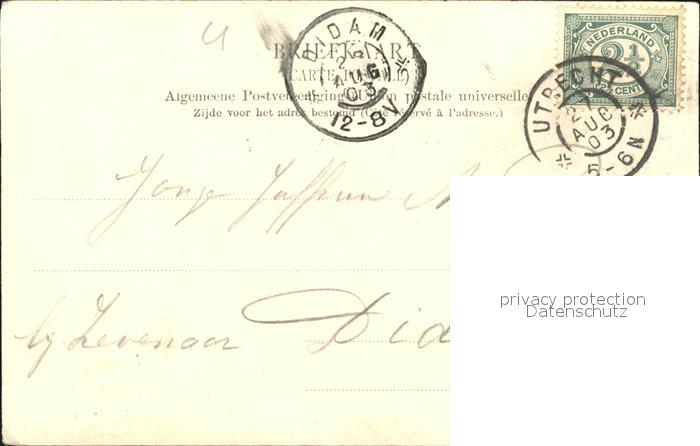 BRIEFKAART
(CARTE POSTALE)
Algemeene Postvereeniging (Union postale universelle
Zijde voor het adres bestemd (Côté réservé à l'adresse.)
DIDAM
AUG
03
12-8V
NEDERLAND
2½
CENT
UTRECHT
AUG
03
5-6N
Jonge Juffrouw
bij Zevenaar Did
privacy protection
Datenschutz